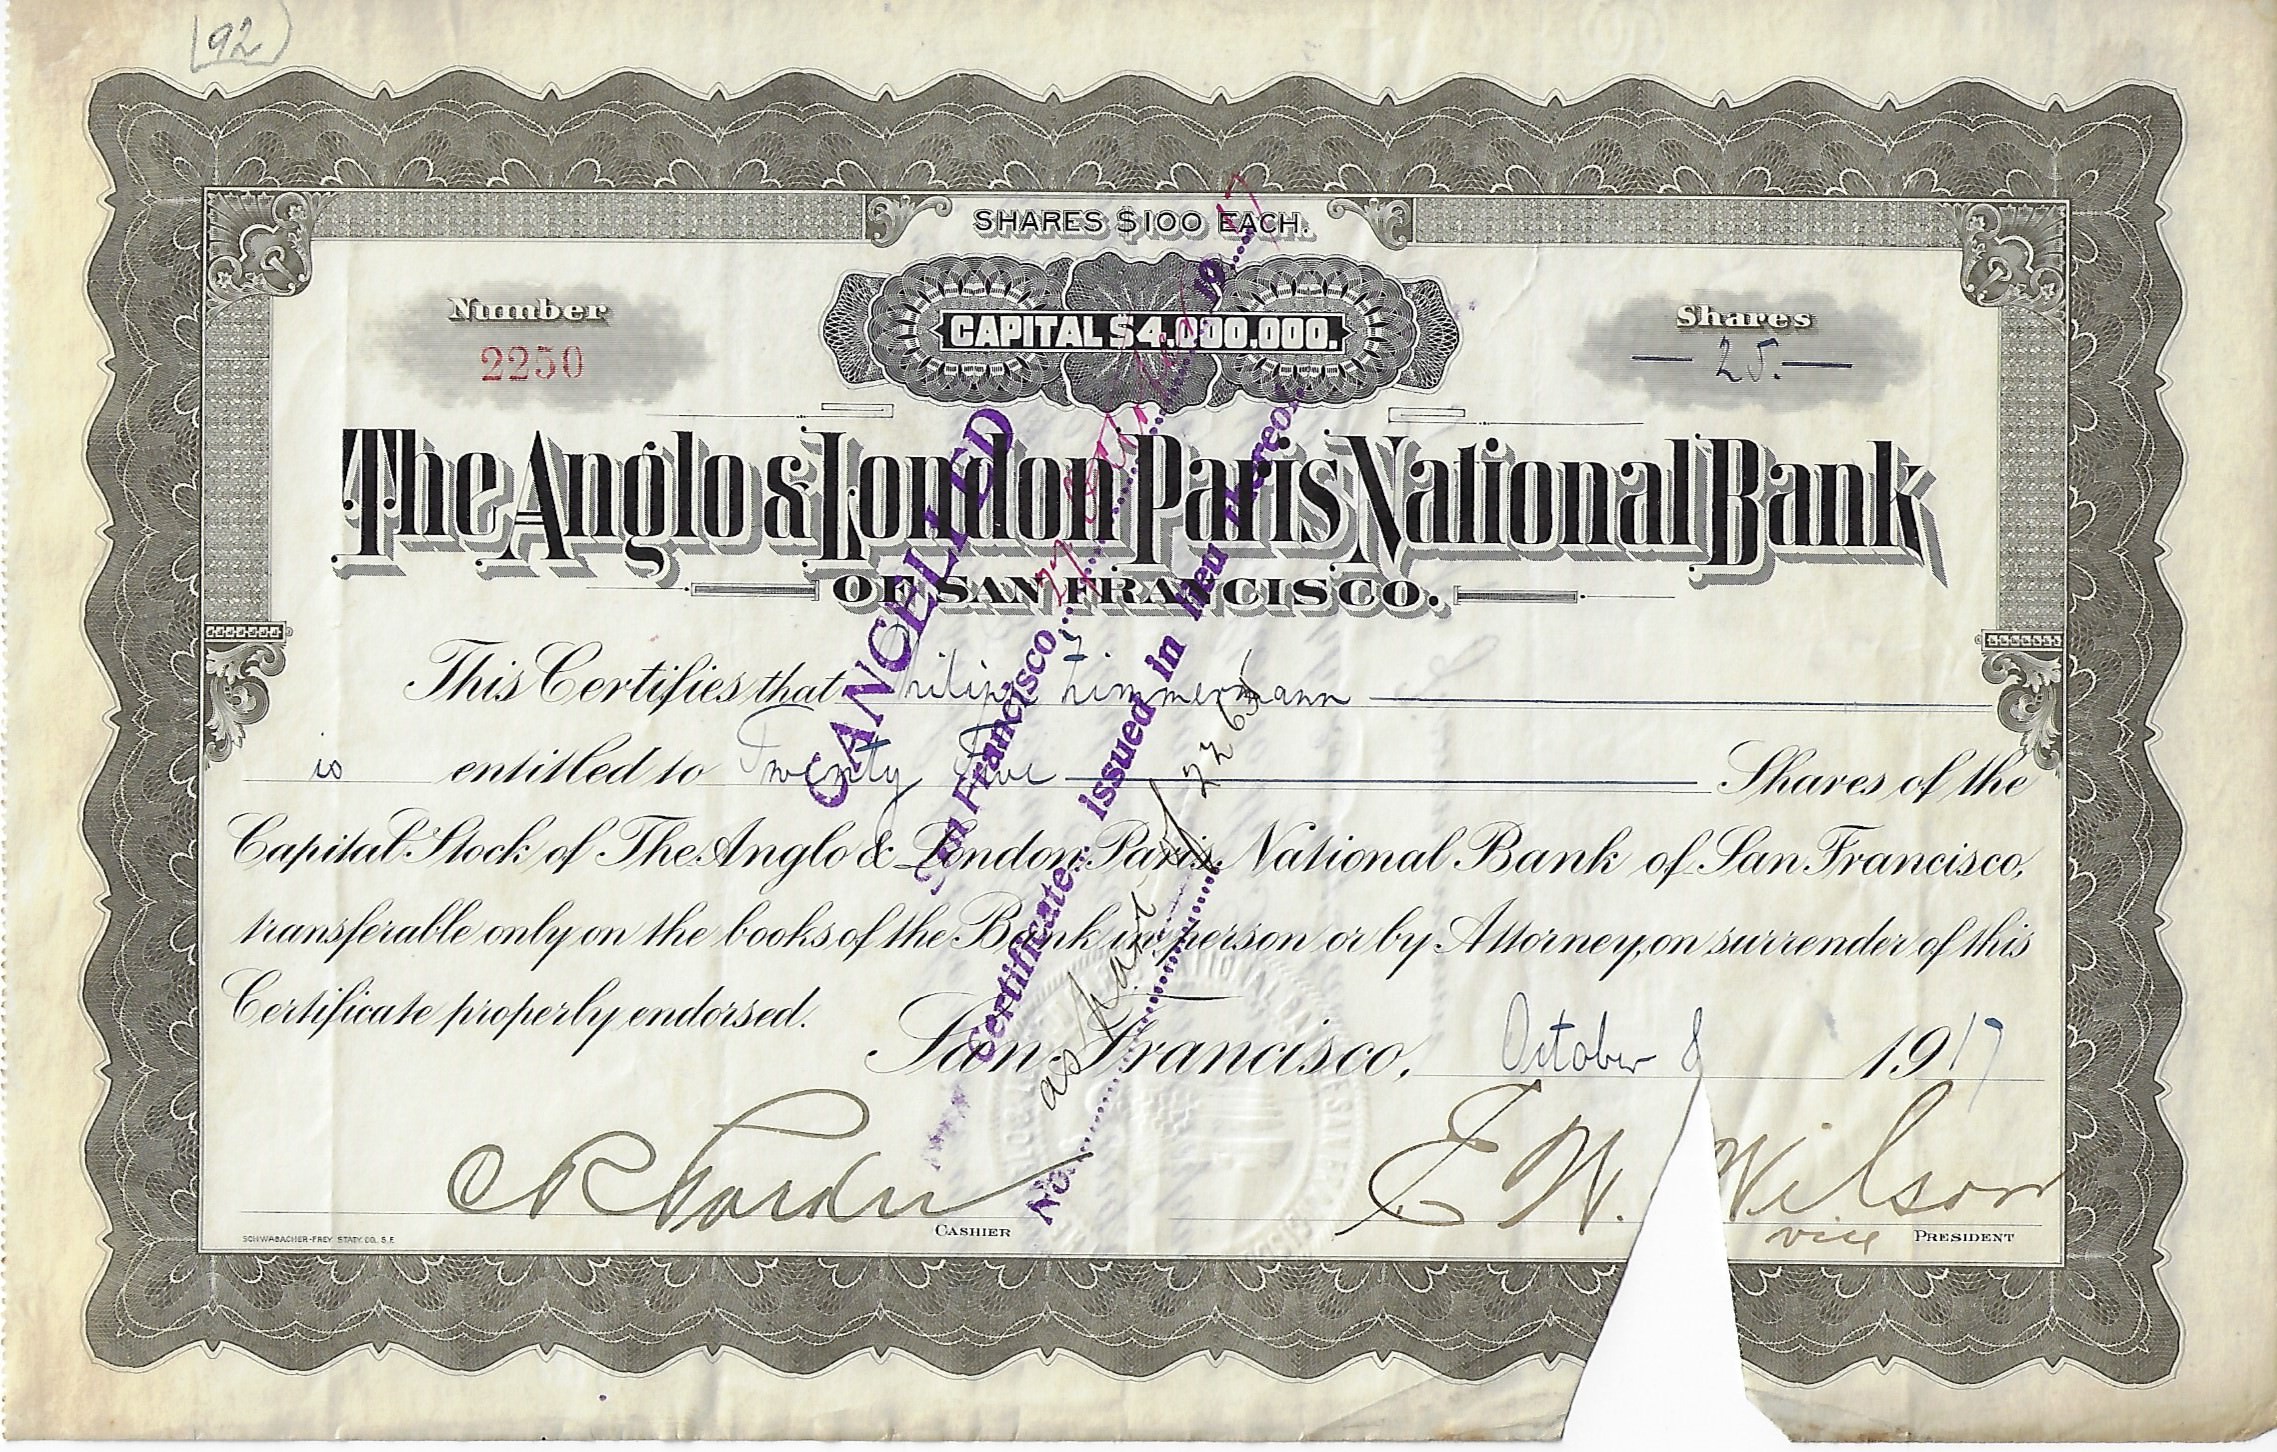 (92)
SHARES $100 EACH.
CAPITAL $4.000.000.
Number
2250
Shares
— 25. —
The Anglo & London Paris National Bank
OF SAN FRANCISCO.
This Certifies that Philipp Zimmermann
is entitled to Twenty Five Shares of the
Capital Stock of The Anglo & London Paris National Bank of San Francisco,
transferable only on the books of the Bank in person or by Attorney, on surrender of this
Certificate properly endorsed.
San Francisco, October 8 1917
E W. Wilson
CASHIER
vice PRESIDENT
SCHWABACHER-FREY STATY. CO. S.F.
CANCELLED
San Francisco 27 19 17
Certificate issued in lieu thereof
No.